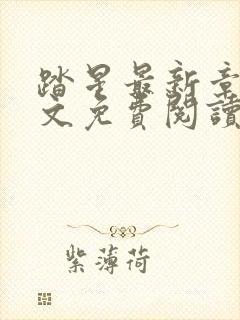 踏星最新章
文免費閱讀
紫薄荷